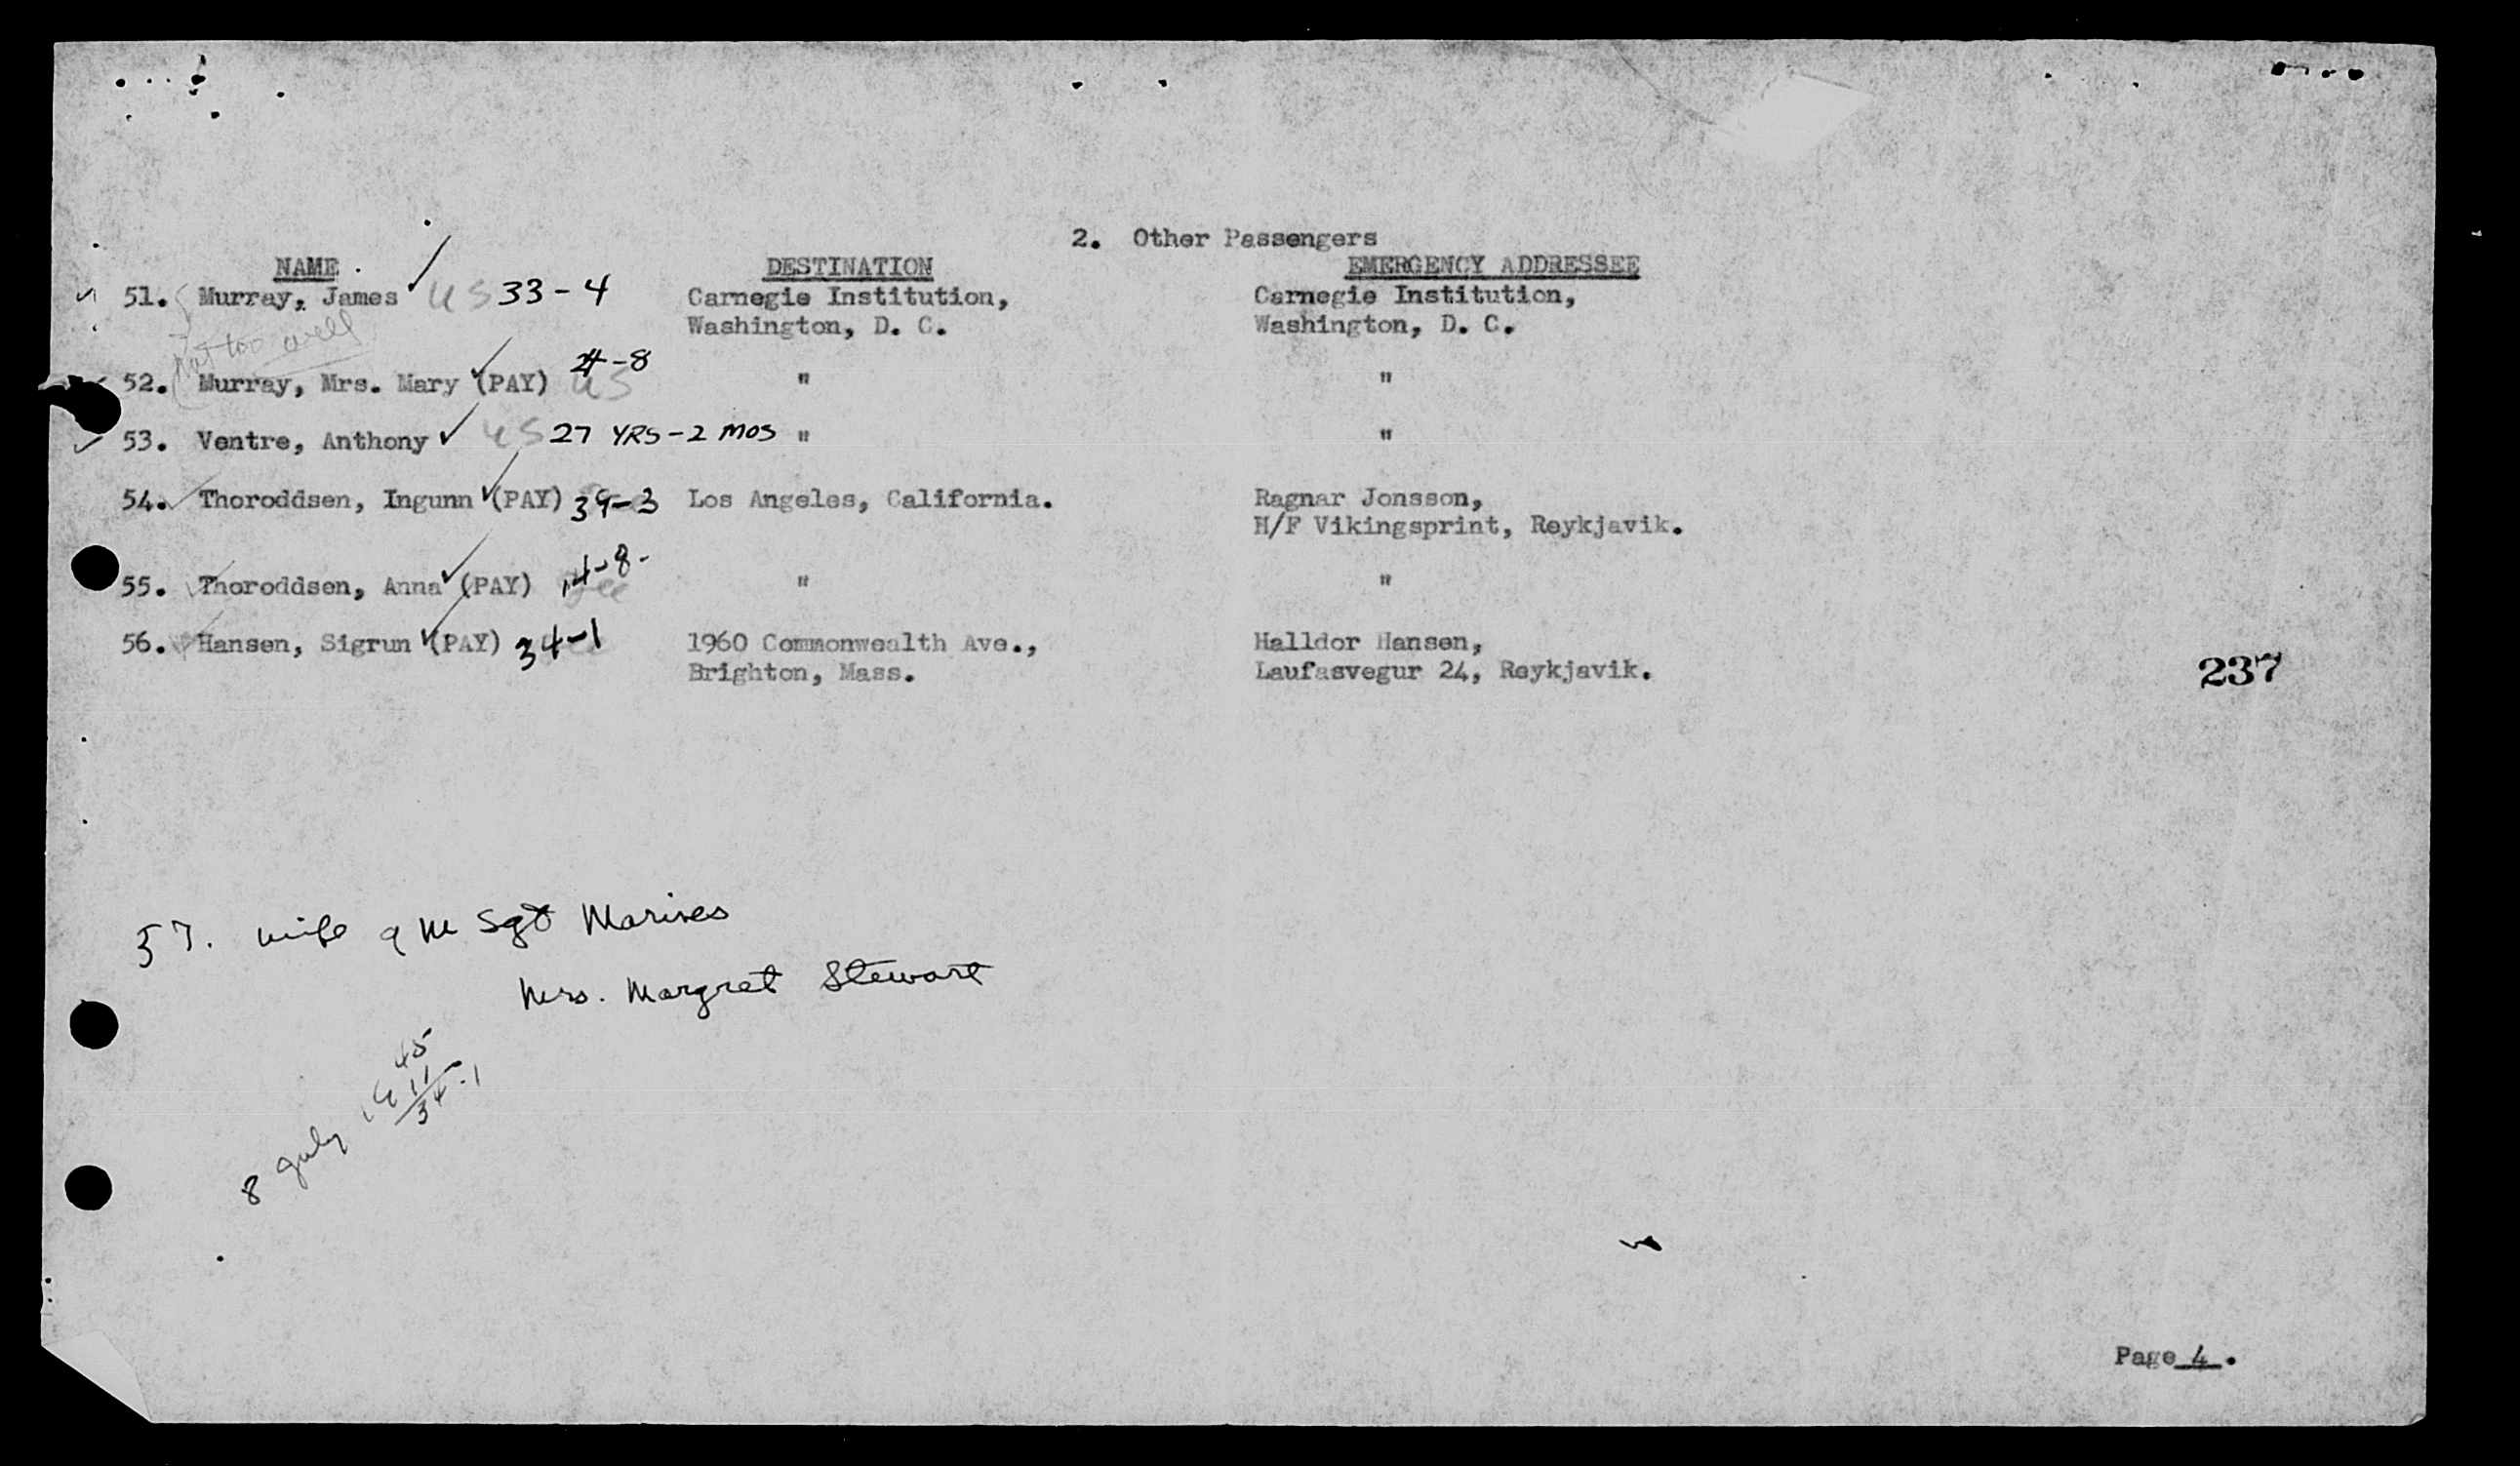 2. Other Passengers
NAME DESTINATION EMERGENCY ADDRESSEE
51. Murray, James US 33-4 Carnegie Institution, Carnegie Institution,
Washington, D. C. Washington, D. C.
not too well
52. Murray, Mrs. Mary (PAY) US -8 " "
53. Ventre, Anthony US 27 YRS-2 MOS " "
54. Thoroddsen, Ingunn (PAY) 39-3 Los Angeles, California. Ragnar Jonsson,
H/F Vikingsprint, Reykjavik.
55. Thoroddsen, Anna (PAY) 14-8- " "
56. Hansen, Sigrun (PAY) 34-1 1960 Commonwealth Ave., Halldor Hansen,
Brighton, Mass. Laufasvegur 24, Reykjavik.
237
57. wife of M Sgt Marines
Mrs. Margret Stewart
45
8 July 1911
34-1
Page 4.